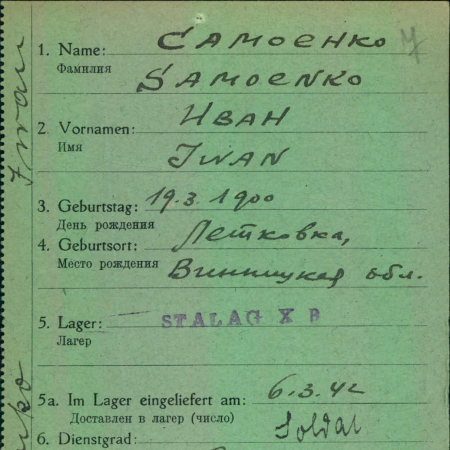 1. Name: САМОЕНКО
Фамилия
SAMOENKO
2. Vornamen: ИВАН
Имя
IWAN
3. Geburtstag: 19.3.1900
День рождения
4. Geburtsort: Летковка,
Место рождения Винницкая обл.
5. Lager: STALAG X B
Лагерь
5a. Im Lager eingeliefert am: 6.3.42
Доставлен в лагерь (число)
6. Dienstgrad: Soldat
Iwan